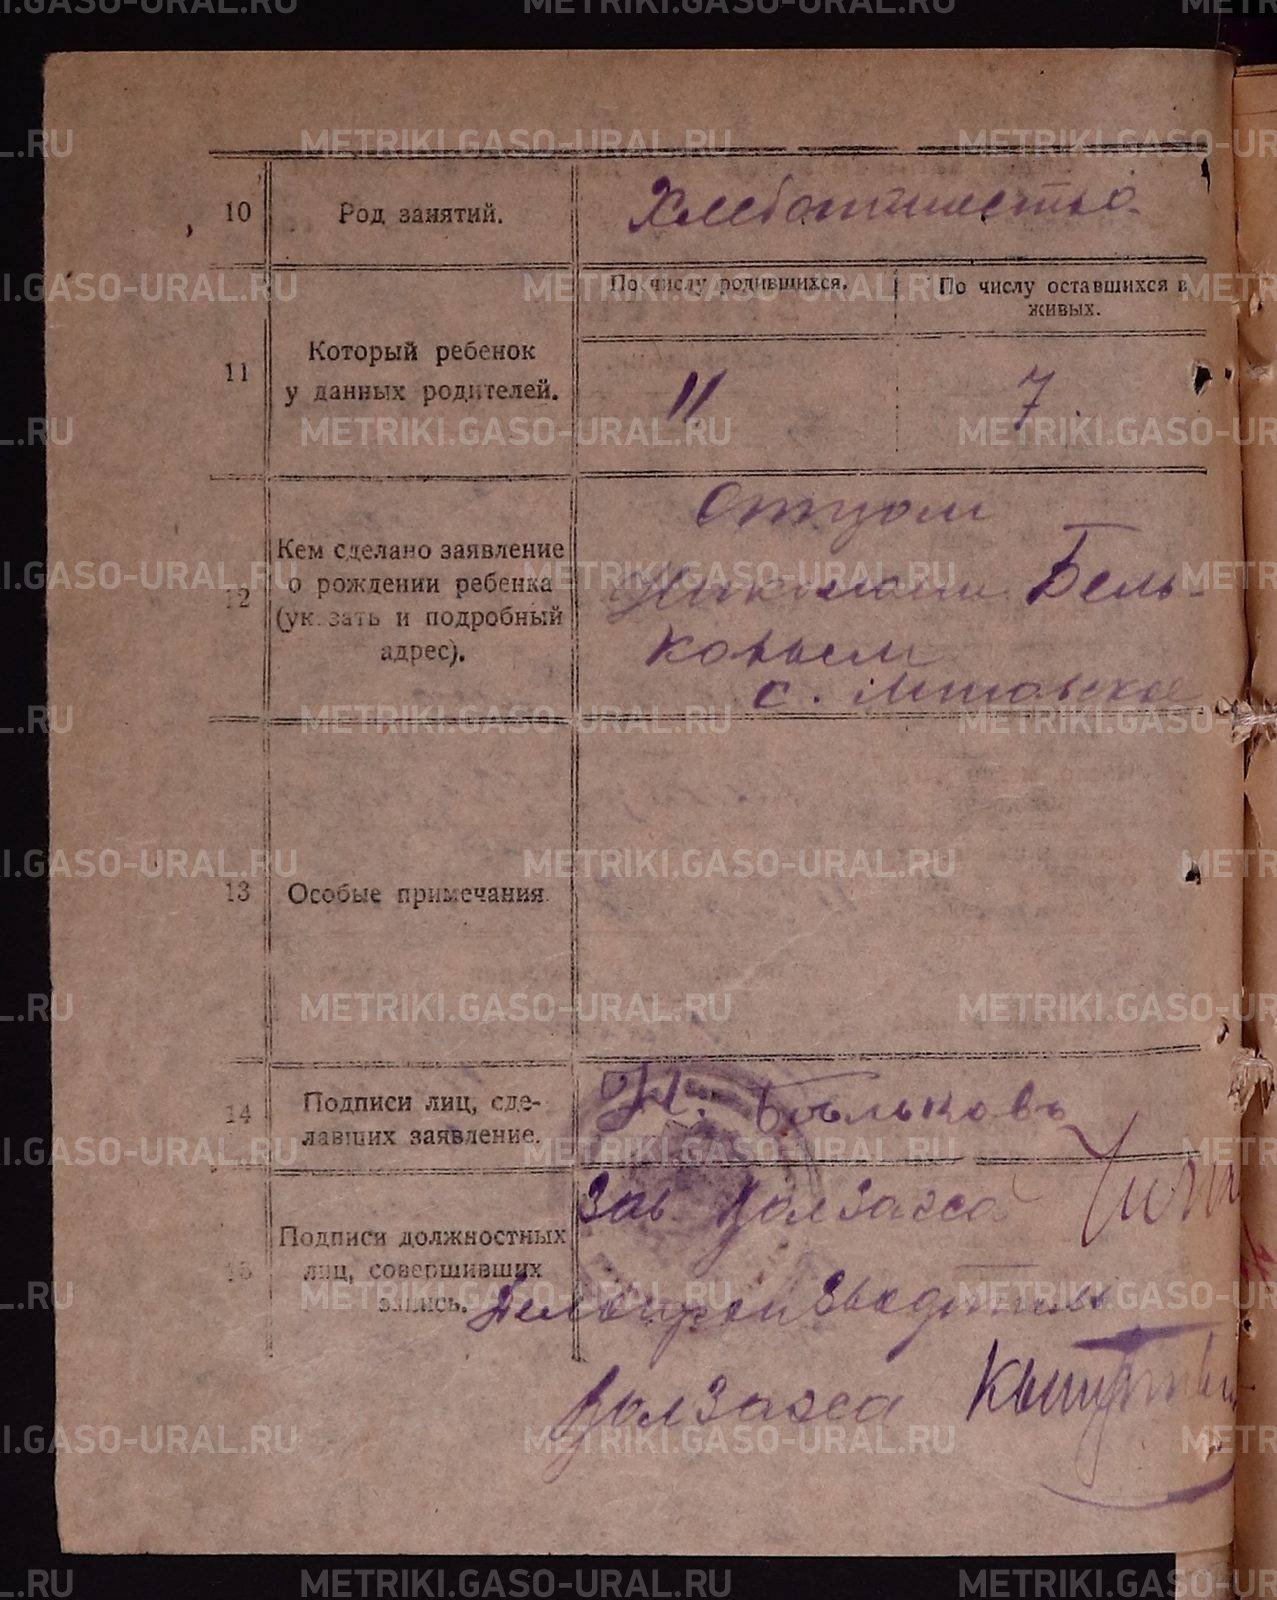 10
Род занятий.
Хлебопашество.
11
Который ребенок
у данных родителей.
По числу родившихся.
По числу оставшихся в
живых.
11
7.
12
Кем сделано заявление
о рождении ребенка
(указать и подробный
адрес).
Отцом
Николаем Бель-
ковым
с.
13
Особые примечания.
14
Подписи лиц, сде-
лавших заявление.
Н. Бѣльковъ
15
Подписи должностных
лиц, совершивших
запись.
Зав. Волзагса
Делопроизводитель
Волзагса
METRIKI.GASO-URAL.RU